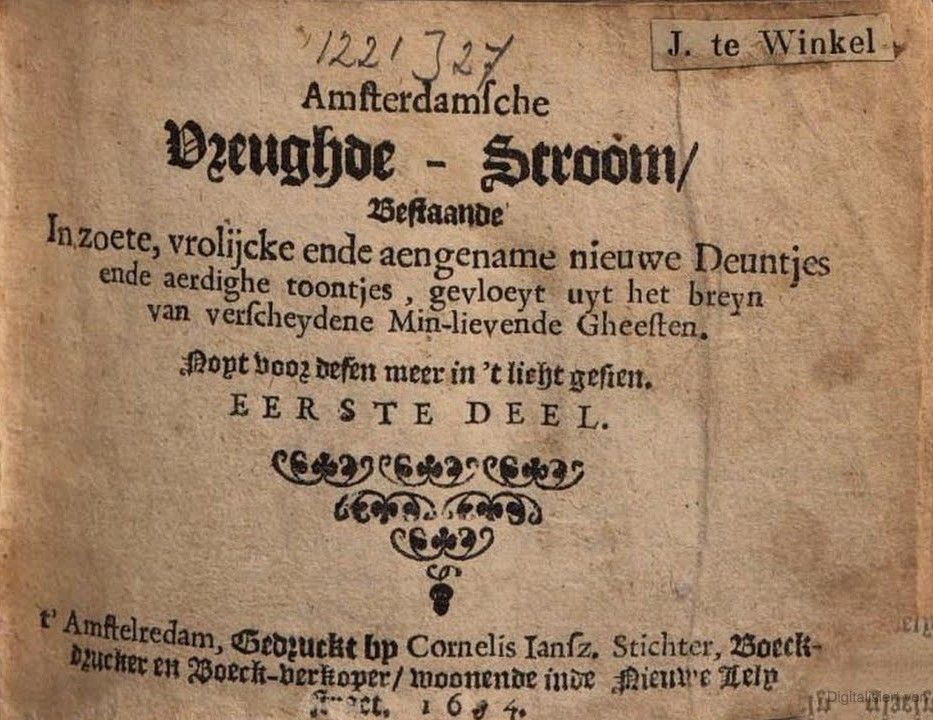 1221 J 27
J. te Winkel
Amſterdamſche
Vreughde - Stroom/
Beſtaande
In zoete, vrolijcke ende aengename nieuwe Deuntjes
ende aerdighe toontjes, gevloeyt uyt het breyn
van verſcheydene Min-lievende Gheeſten.
Noyt voor deſen meer in 't licht geſien.
EERSTE DEEL.
t' Amſtelredam, Gedruckt by Cornelis Ianſz. Stichter, Boeck-
drucker en Boeck-verkoper/ woonende inde Nieuwe Lely
Digitalisiert von